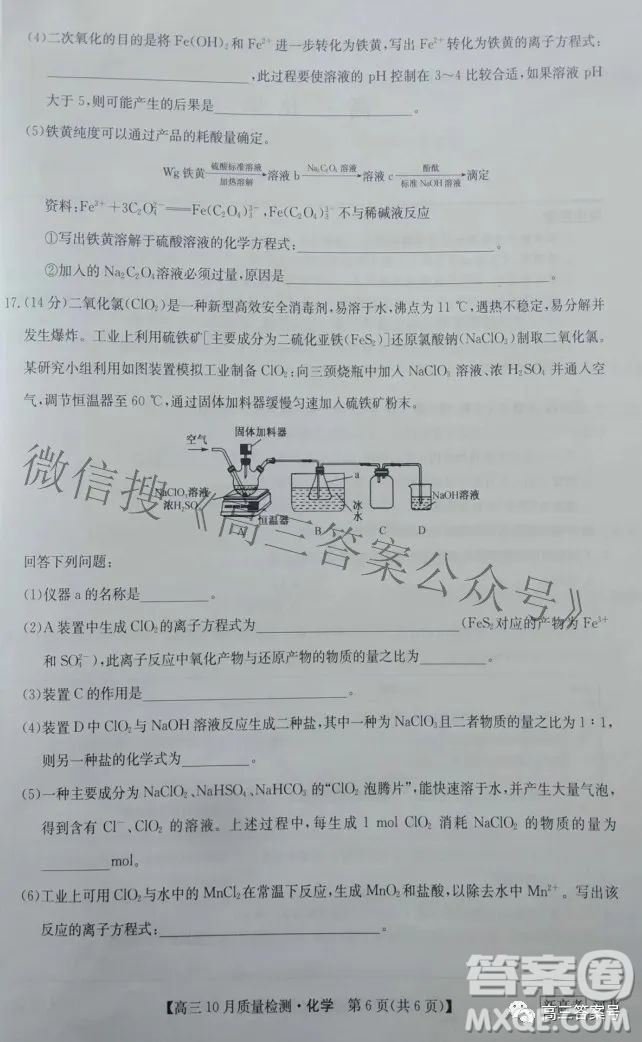 (4)二次氧化的目的是将 Fe(OH)₂ 和 Fe²⁺ 进一步转化为铁黄,写出 Fe²⁺ 转化为铁黄的离子方程式:
____________________,此过程要使溶液的 pH 控制在 3~4 比较合适,如果溶液 pH
大于 5,则可能产生的后果是____________________。
(5)铁黄纯度可以通过产品的耗酸量确定。
Wg 铁黄 硫酸标准溶液 加热溶解 溶液 b Na₂C₂O₄ 溶液 溶液 c 酚酞 标准 NaOH 溶液 滴定
资料:Fe³⁺+3C₂O₄²⁻══Fe(C₂O₄)₃³⁻,Fe(C₂O₄)₃³⁻ 不与稀碱液反应
①写出铁黄溶解于硫酸溶液的化学方程式:____________________。
②加入的 Na₂C₂O₄ 溶液必须过量,原因是____________________。
17.(14 分)二氧化氯(ClO₂)是一种新型高效安全消毒剂,易溶于水,沸点为 11 ℃,遇热不稳定,易分解并
发生爆炸。工业上利用硫铁矿[主要成分为二硫化亚铁(FeS₂)]还原氯酸钠(NaClO₃)制取二氧化氯。
某研究小组利用如图装置模拟工业制备 ClO₂:向三颈烧瓶中加入 NaClO₃ 溶液、浓 H₂SO₄ 并通入空
气,调节恒温器至 60 ℃,通过固体加料器缓慢匀速加入硫铁矿粉末。
固体加料器
空气
a
NaClO₃溶液
浓H₂SO₄
恒温器
冰水
NaOH溶液
A B C D
回答下列问题:
(1)仪器 a 的名称是________。
(2)A 装置中生成 ClO₂ 的离子方程式为____________________(FeS₂ 对应的产物为 Fe³⁺
和 SO₄²⁻),此离子反应中氧化产物与还原产物的物质的量之比为________。
(3)装置 C 的作用是____________________。
(4)装置 D 中 ClO₂ 与 NaOH 溶液反应生成二种盐,其中一种为 NaClO₃ 且二者物质的量之比为 1∶1,
则另一种盐的化学式为________。
(5)一种主要成分为 NaClO₂、NaHSO₄、NaHCO₃ 的“ClO₂ 泡腾片”,能快速溶于水,并产生大量气泡,
得到含有 Cl⁻、ClO₂ 的溶液。上述过程中,每生成 1 mol ClO₂ 消耗 NaClO₂ 的物质的量为
________mol。
(6)工业上可用 ClO₂ 与水中的 MnCl₂ 在常温下反应,生成 MnO₂ 和盐酸,以除去水中 Mn²⁺。写出该
反应的离子方程式:____________________。
【高三 10 月质量检测·化学 第 6 页(共 6 页)】
新高考 河北
微信搜《高三答案公众号》
答案圈
高三答案号
MXQE.COM